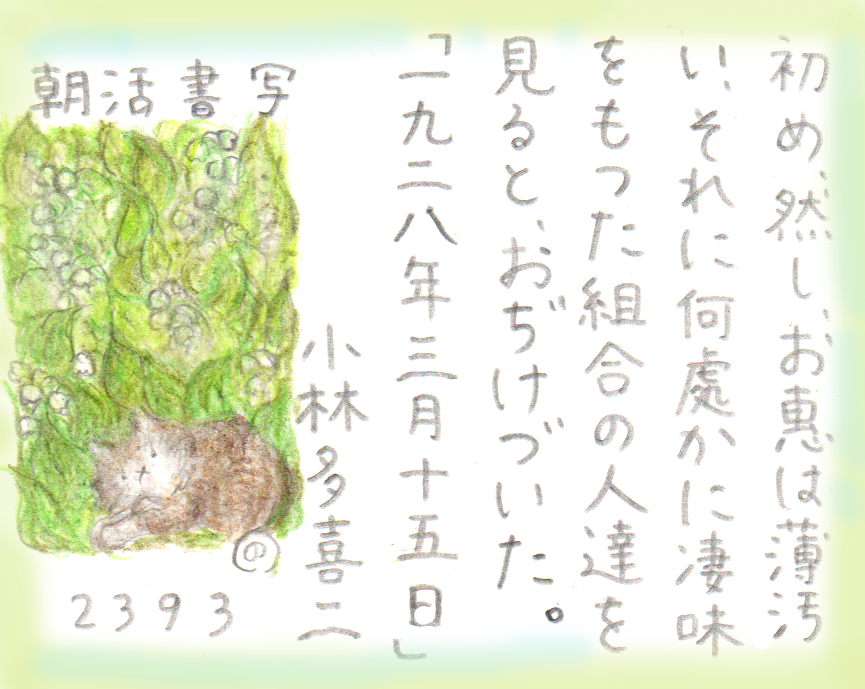 初め、然し、お惠は薄汚
い、それに何處かに凄味
をもつた組合の人達を
見ると、おぢけづいた。
「一九二八年三月十五日」
小林多喜二
朝活書写
の
2393